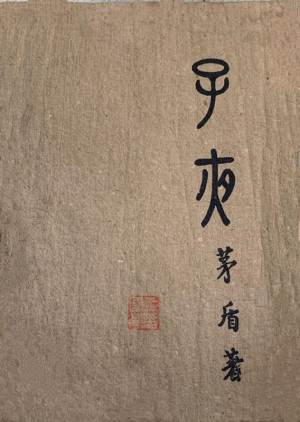 子夜
茅盾著